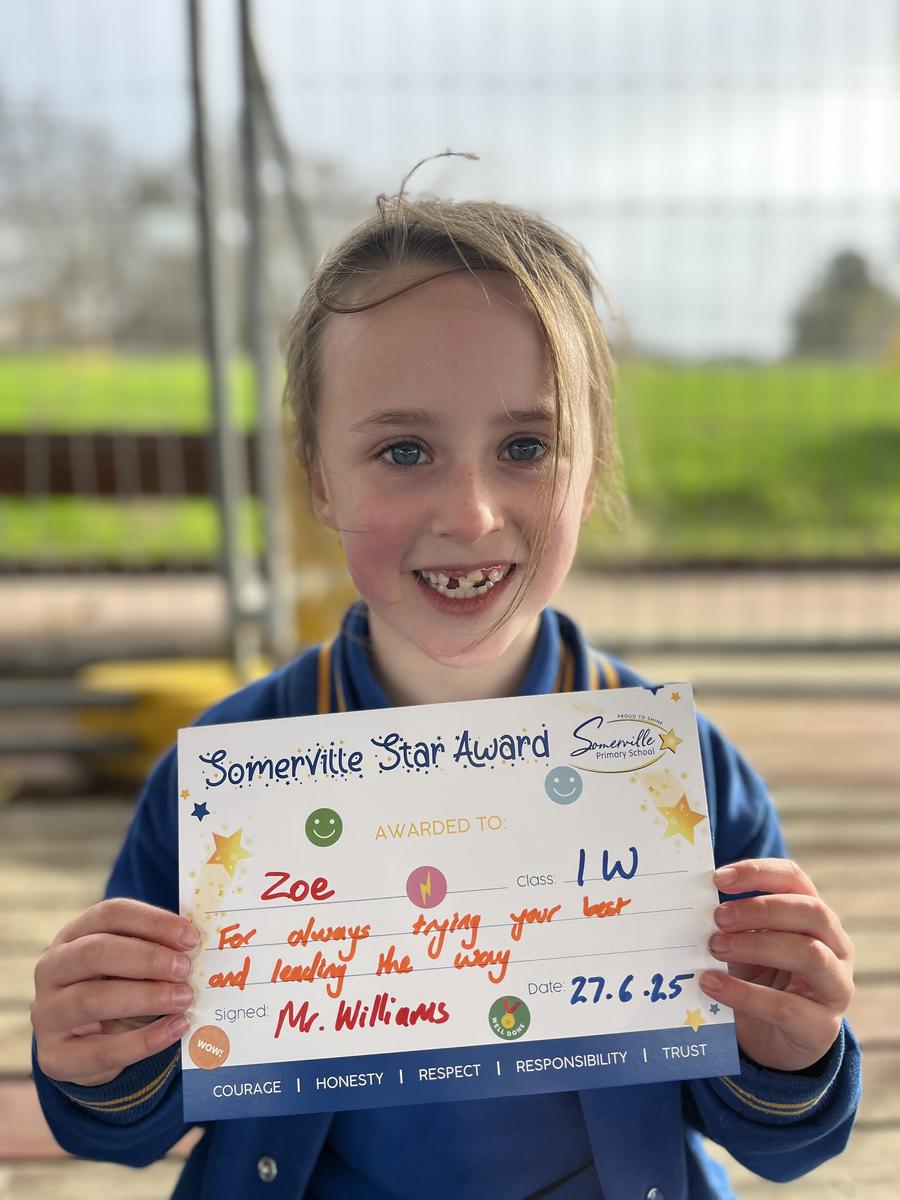 Somerville Star Award
PROUD TO SHINE
Somerville
Primary School
AWARDED TO:
Zoe Class: 1W
For always trying your best
and leading the way
Signed: Mr. Williams Date: 27.6.25
WELL DONE
WOW!
COURAGE | HONESTY | RESPECT | RESPONSIBILITY | TRUST